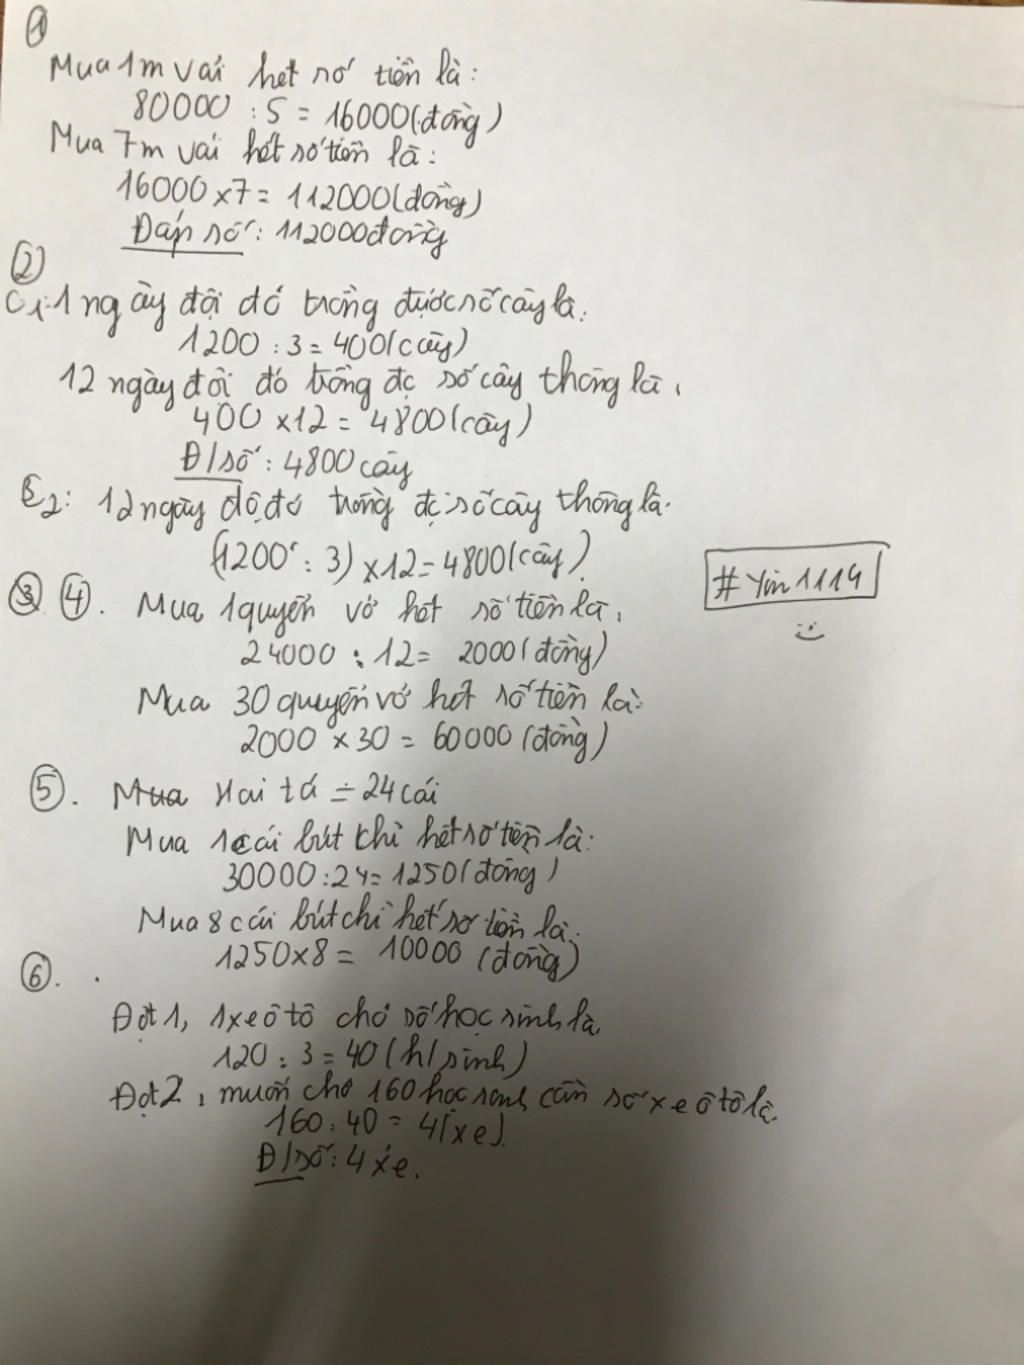 ①
Mua 1m vải hết số tiền là:
80000 : 5 = 16000(đồng)
Mua 7m vải hết số tiền là:
16000 x 7 = 112000(đồng)
Đáp số: 112000đồng
②
C1: 1 ngày đội đó trồng được số cây là:
1200 : 3 = 400(cây)
12 ngày đội đó trồng đc số cây thông là:
400 x 12 = 4800(cây)
Đ/số: 4800 cây
C2: 12 ngày độ đó trồng đc số cây thông là:
(1200 : 3) x 12 = 4800(cây)
# Yin1114
③ ④. Mua 1 quyển vở hết số tiền là:
24000 : 12 = 2000(đồng)
Mua 30 quyển vở hết số tiền là:
2000 x 30 = 60000 (đồng)
⑤. Mua Hai tá = 24 cái
Mua 1 cái bút chì hết số tiền là:
30000 : 24 = 1250(đồng)
Mua 8 cái bút chì hết số tiền là:
1250 x 8 = 10000 (đồng)
⑥.
Đợt 1, 1 xe ô tô chở số học sinh là,
120 : 3 = 40 (h/sinh)
Đợt 2, muốn chở 160 học sinh cần số xe ô tô là:
160 : 40 = 4(xe).
Đ/số: 4 xe.